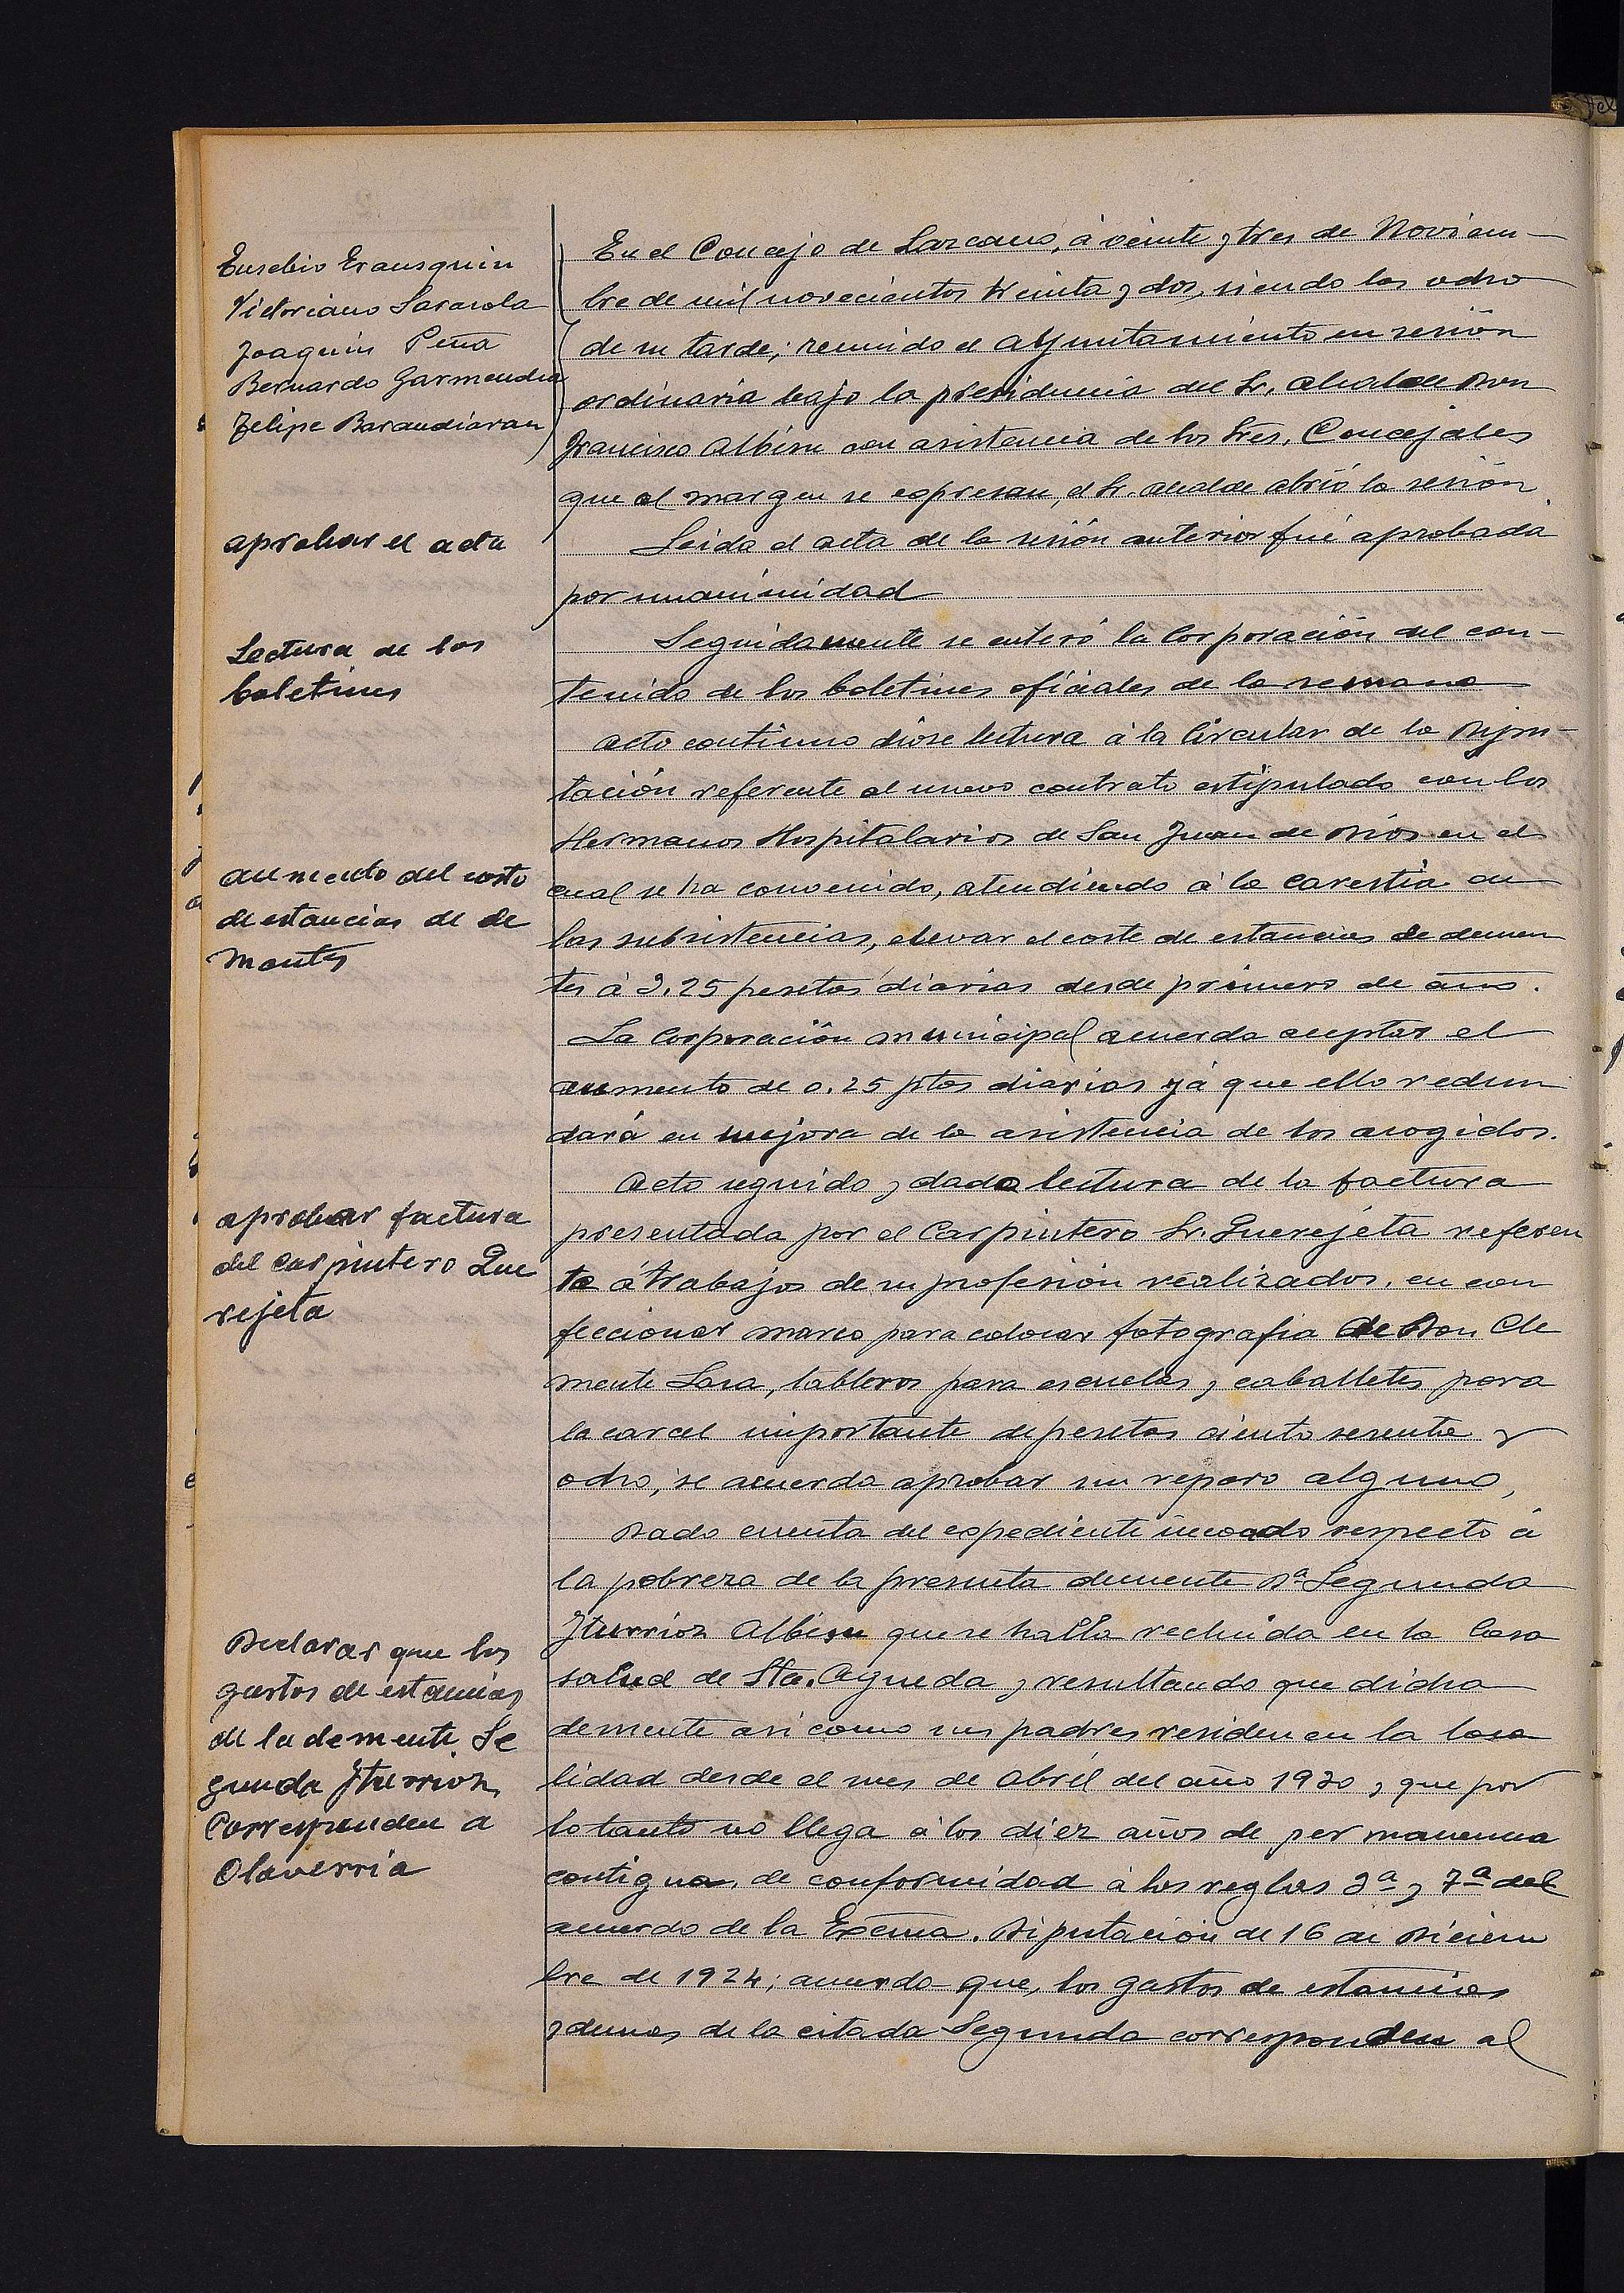 Eusebio Erausquin
Victoriano Sarasola
Joaquin Peña
Bernardo Garmendia
Felipe Barandiaran
En el Concejo de Lazcano, á veinte y tres de Noviem-
bre de mil novecientos treinta y dos, siendo las ocho
de su tarde; reunido el Ayuntamiento en sesión
ordinaria bajo la presidencia del Sr. Alcalde Don
Francisco Albisu con asistencia de los Sres. Concejales
que al margen se expresan, el Sr. Alcalde abrió la sesión.
aprobar el acta
Leida el acta de la sesión anterior fué aprobada
por unanimidad
Lectura de los
boletines
Seguidamente se enteró la Corporación del con-
tenido de los boletines oficiales de la semana
Acto continuo dióse lectura á la Circular de la Dipu-
tación referente al nuevo contrato estipulado con los
Hermanos Hospitalarios de San Juan de Dios en el
aumento del costo
de estancias de de
mentes
cual se ha convenido, atendiendo á la carestia de
las subsistencias, elevar el coste de estancias de demen
tes á 2.25 pesetas diarias desde primero de año.
La Corporación municipal acuerda aceptar el
aumento de 0.25 ptas diarias yá que ello redun
dará en mejora de la asistencia de los acogidos.
aprobar factura
del carpintero Que
rejeta
Acto seguido y dada lectura de la factura
presentada por el Carpintero Sr. Querejeta referen
te á trabajos de su profesión realizados, en con
feccionar marco para colocar fotografia de Don Cle
mente Lasa, tableros para escuelas y caballetes para
la carcel importante de pesetas ciento sesenta y
ocho, se acuerda aprobar sin reparo alguno,
Dada cuenta del expediente incoado respecto á
la pobreza de la presunta demente Dª Segunda
Declarar que los
gastos de estancias
de la demente Se
gunda Iturrioz,
Corresponden a
Olaverria
Iturrioz Albisu que se halla recluida en la Casa
salud de Sta. Agueda y resultando que dicha
demente asi como sus padres residen en la loca
lidad desde el mes de Abril del año 1930 y que por
lo tanto no llega á los diez años de permanencia
contigua, de conformidad á las reglas 3ª y 7ª del
acuerdo de la Excma. Diputación de 16 de Diciem
bre de 1924; acuerda que, los gastos de estancias
y demas de la citada Segunda corresponden al